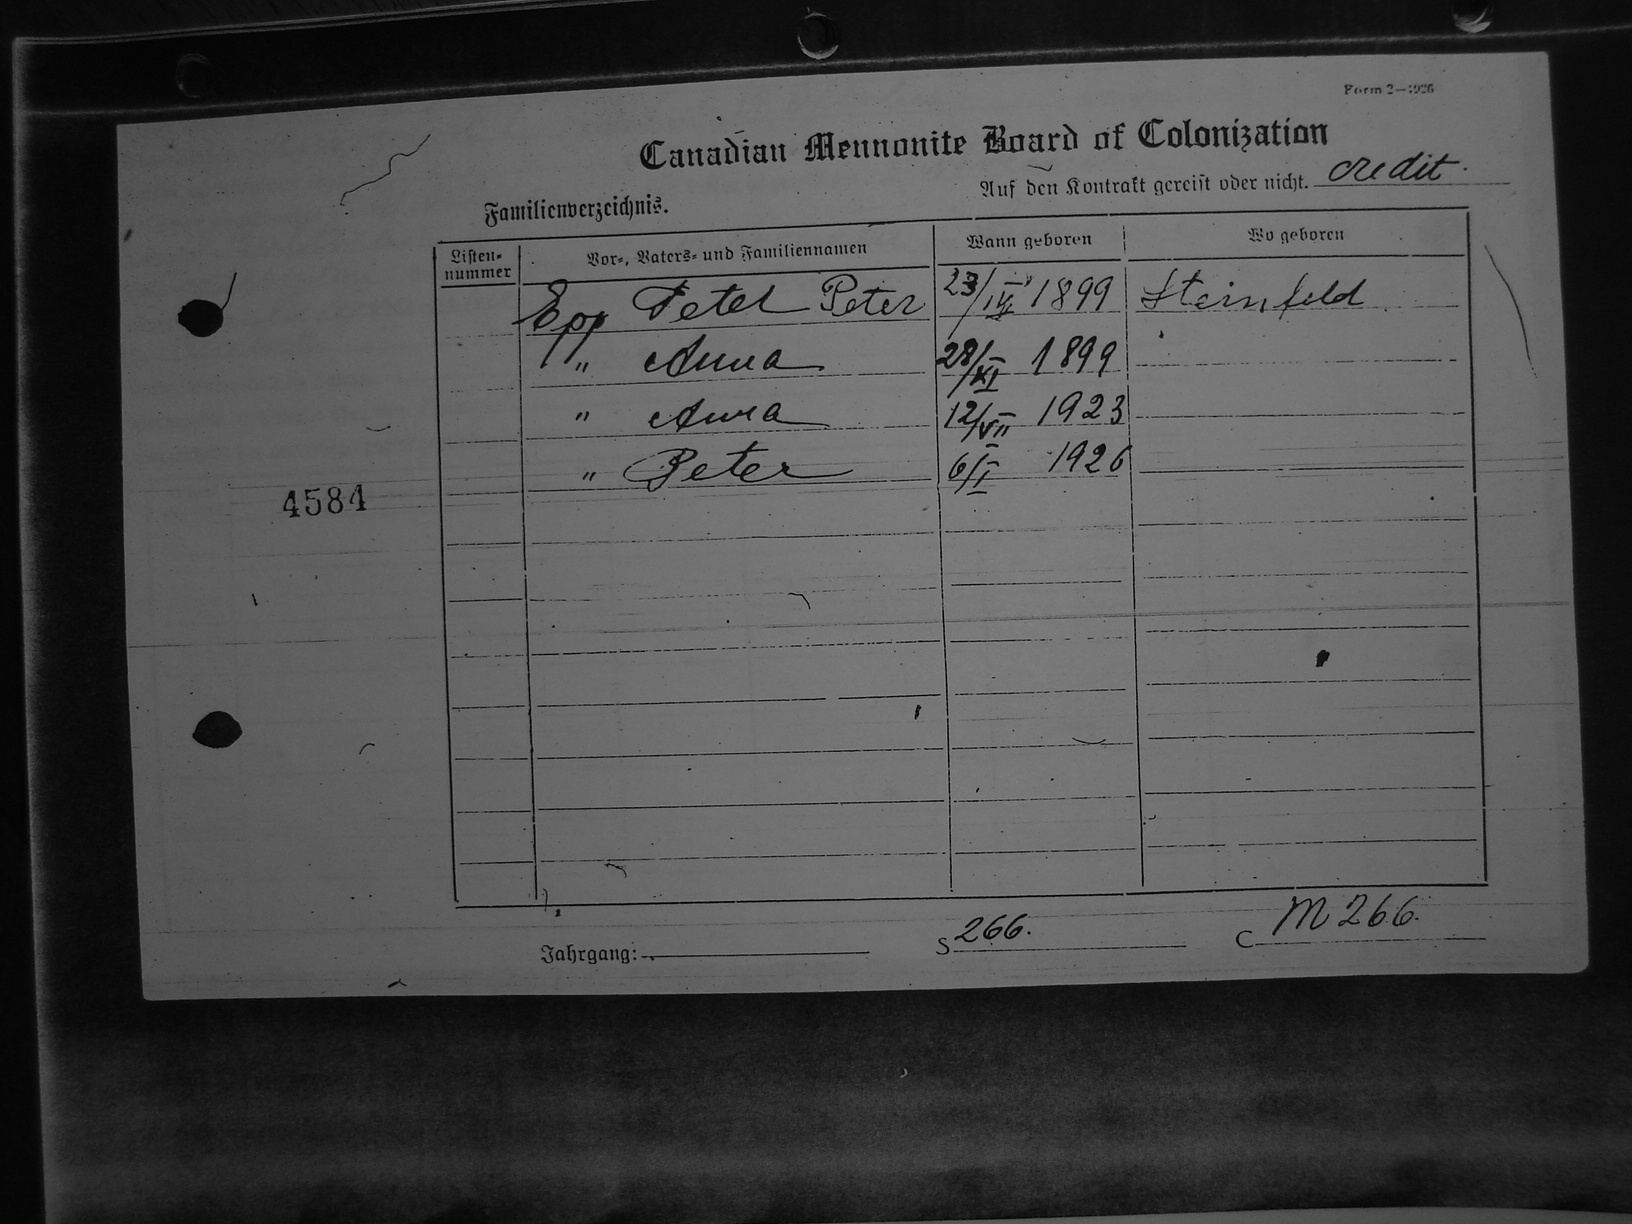 Form 2—1926
Canadian Mennonite Board of Colonization
Auf den Kontrakt gereist oder nicht. credit.
Familienverzeichnis.
Listen-nummer Vor-, Vaters- und Familiennamen Wann geboren Wo geboren
Epp Peter Peter 23/IV 1899 Steinfeld
" Anna 28/XI 1899
" Anna 12/VII 1923
" Peter 6/I 1926
4584
Jahrgang: S 266. C M 266.